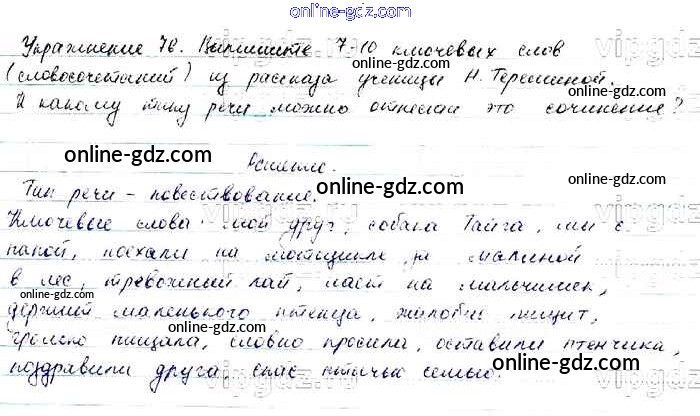 online-gdz.com
Упражнение 76. Выпишите 7-10 ключевых слов
(словосочетаний) из рассказа ученицы Н. Терешиной.
К какому типу речи можно отнести это сочинение?
online-gdz.com online-gdz.com
Решение.
online-gdz.com
Тип речи – повествование.
Ключевые слова: мой друг, собака Тайга, мы с
папой, поехали на мотоцикле за малиной
в лес, тревожный лай, лает на мальчишек,
держит маленького птенца, жалобно пищит,
громко пищала, словно просила, оставили птенчика,
поздравили друга, спас птичью семью.
online-gdz.com online-gdz.com
online-gdz.com online-gdz.com
online-gdz.com
online-gdz.com
vipgdz.ru
vipgdz